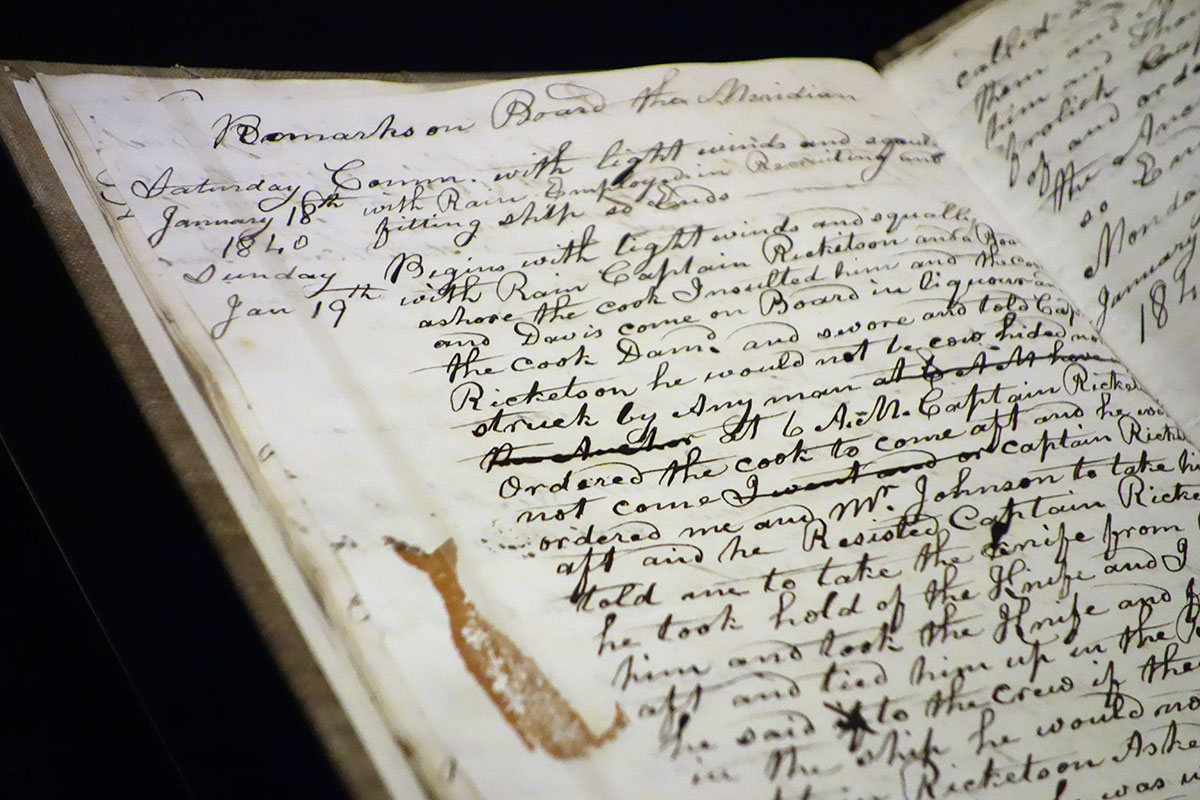 Remarks on Board the Meridian
Saturday Comm. with light winds and squalls
January 18th with Rain Employed in Recruiting and
1840 fitting ship so Ends
Sunday Begins with light winds and squally
Jan 19th with Rain Captain Ricketson and a Boat
ashore the cook Insulted him and the
and Davis come on Board in liquour
the cook Damd and swore and told Cap
Ricketson he would not be cow hided no
struck by Any man at 6 A M have
the Anchor At 6 A.M. Captain Ricket
Ordered the cook to come aft and he wo
not come I went and or captain Ricke
ordered me and Mr. Johnson to take hi
aft and he Resisted Captain Ricke
told me to take the knife from
he took hold of the Knife and I
him and took the Knife and
aft and tied him up in the
he said to the crew if the
in the ship he would no
Ricketson Aske
was
called
them and
him and
and
of
the
so
Monda
January
184